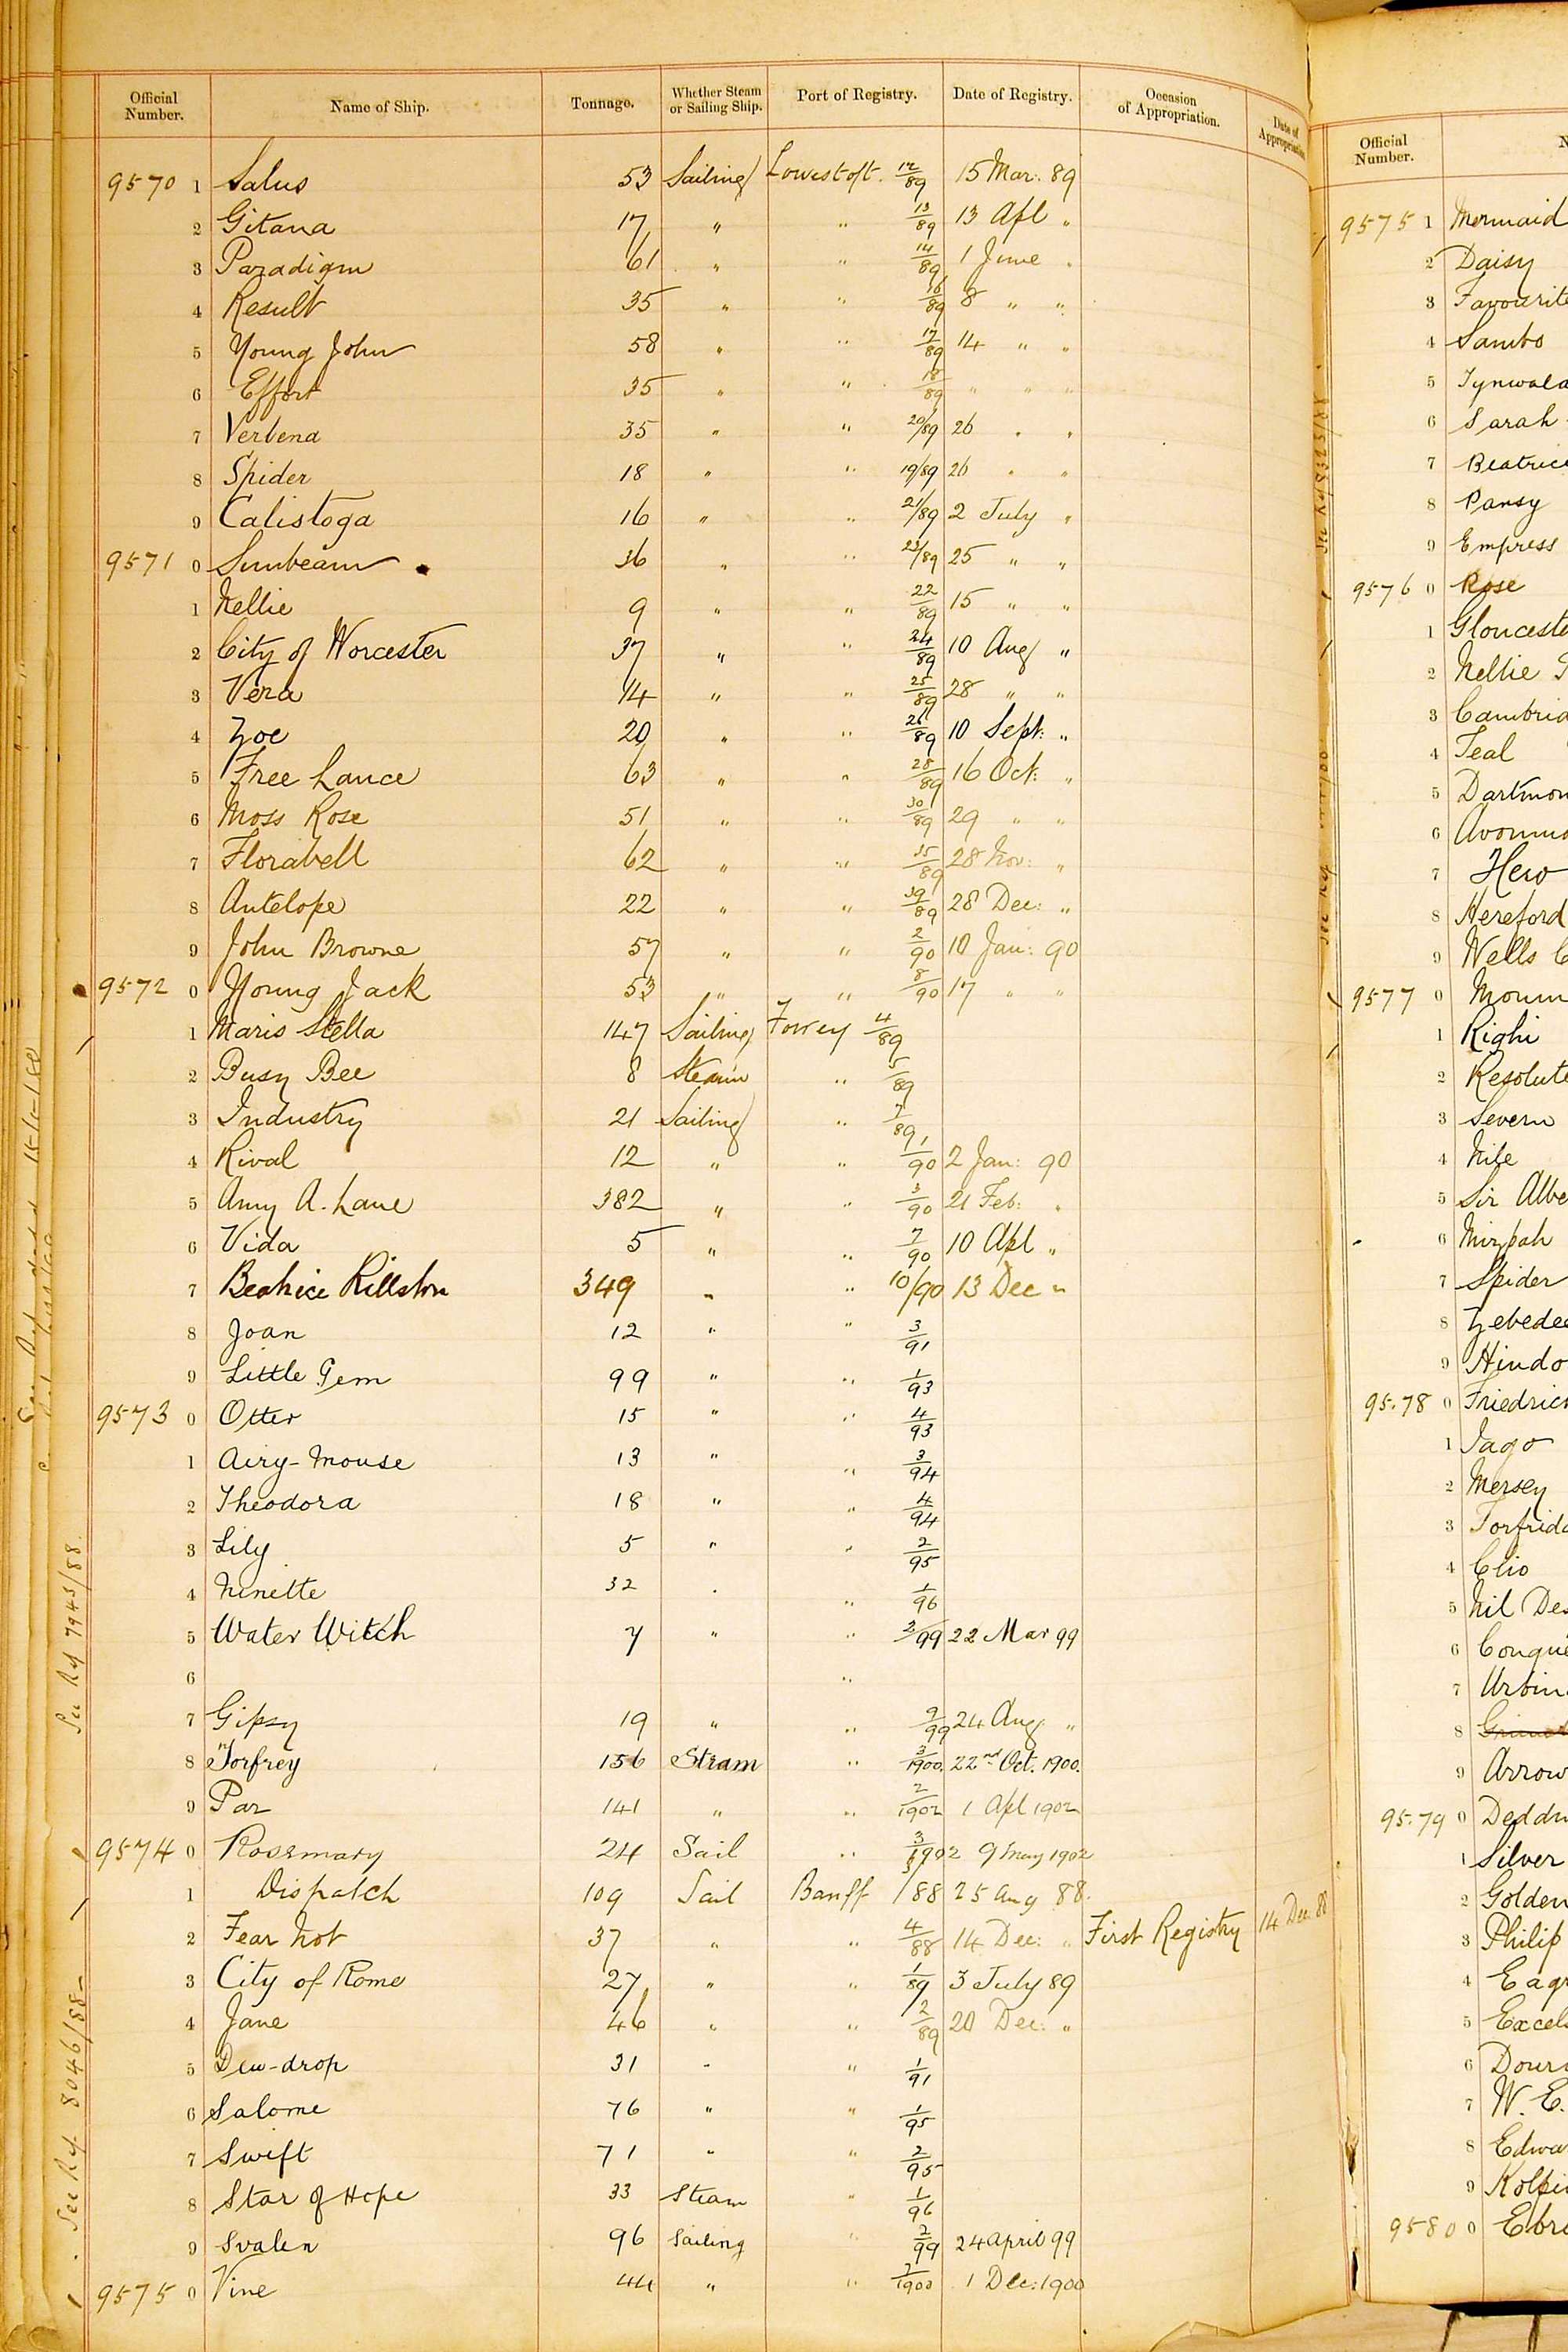 Official Number. Name of Ship. Tonnage. Whether Steam or Sailing Ship. Port of Registry. Date of Registry. Occasion of Appropriation. Date of Appropriation
9570 1 Salus 53 Sailing Lowestoft. 12/89 15 Mar: 89
2 Gitana 17 " " 13/89 13 Apl "
3 Paradigm 61 " " 14/89 1 June "
4 Result 35 " " 16/89 8 " "
5 Young John 58 " " 17/89 14 " "
6 Effort 35 " " 18/89 " " "
7 Verbena 35 " " 20/89 26 " "
8 Spider 18 " " 19/89 26 " "
9 Calistoga 16 " " 21/89 2 July "
9571 0 Sunbeam 36 " " 23/89 25 " "
1 Nellie 9 " " 22/89 15 " "
2 City of Worcester 37 " " 24/89 10 Aug "
3 Vera 14 " " 25/89 28 " "
4 Zoe 20 " " 26/89 10 Sept: "
5 Free Lance 63 " " 28/89 16 Oct: "
6 Moss Rose 51 " " 30/89 29 " "
7 Florabell 62 " " 35/89 28 Nov: "
8 Antelope 22 " " 39/89 28 Dec: "
9 John Browne 57 " " 2/90 10 Jan: 90
9572 0 Young Jack 53 " " 8/90 17 " "
1 Maris Stella 147 Sailing Fowey 4/89
2 Busy Bee 8 Steam " 5/89
3 Industry 21 Sailing " 7/89
4 Rival 12 " " 1/90 2 Jan: 90
5 Amy A. Lane 382 " " 3/90 21 Feb: "
6 Vida 5 " " 7/90 10 Apl "
7 Beatrice Killston 349 " " 10/90 13 Dec "
8 Joan 12 " " 3/91
9 Little Gem 99 " " 1/93
9573 0 Otter 15 " " 4/93
1 Airy-Mouse 13 " " 3/94
2 Theodora 18 " " 4/94
3 Lily 5 " " 2/95
4 Ninette 32 " " 1/96
5 Water Witch 7 " " 2/99 22 Mar 99
6 "
7 Gipsy 19 " " 9/99 24 Aug "
8 Torfrey 156 Steam " 3/1900. 22nd Oct. 1900.
9 Par 141 " " 2/1902 1 Apl 1902
9574 0 Rosemary 24 Sail " 3/1902 9 May 1902
1 Dispatch 109 Sail Banff 3/88 25 Aug 88.
2 Fear Not 37 " " 4/88 14 Dec: " First Registry 14 Dec. 88
3 City of Rome 27 " " 1/89 3 July 89
4 Jane 46 " " 2/89 20 Dec: "
5 Dew-drop 31 " " 1/91
6 Salome 76 " " 1/95
7 Swift 71 " " 2/95
8 Star of Hope 33 Steam " 1/96
9 Svalen 96 Sailing " 2/99 24 April 99
9575 0 Vine 44 " " 2/1900 1 Dec: 1900
See Ref 7945/88.
See Ref. 8046/88
Official Number. N
9575 1 Mermaid
2 Daisy
3 Favourite
4 Sambo
5 Tynwald
6 Sarah
7 Beatrice
8 Pansy
9 Empress
9576 0 Rose
1 Glouceste
2 Nellie
3 Cambrid
4 Teal
5 Dartmou
6 Avonmo
7 Hero
8 Hereford
9 Wells C
9577 0 Monm
1 Righi
2 Resolute
3 Severn
4 Nile
5 Sir Albe
6 Mizpah
7 Spider
8 Zebedee
9 Hindo
95.78 0 Friedrich
1 Iago
2 Mersey
3 Torfrida
4 Clio
5 Nil Des
6 Conque
7 Urbin
8
9 Arrow
95.79 0 Deddn
1 Silver
2 Golden
3 Philip
4 Eag
5 Excels
6 Douro
7 W. E.
8 Edwa
9 Kolpi
9580 0 Ebro